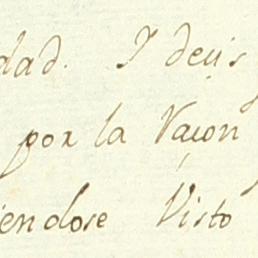 dad. I deçis
por la Vaçon
iendose Visto